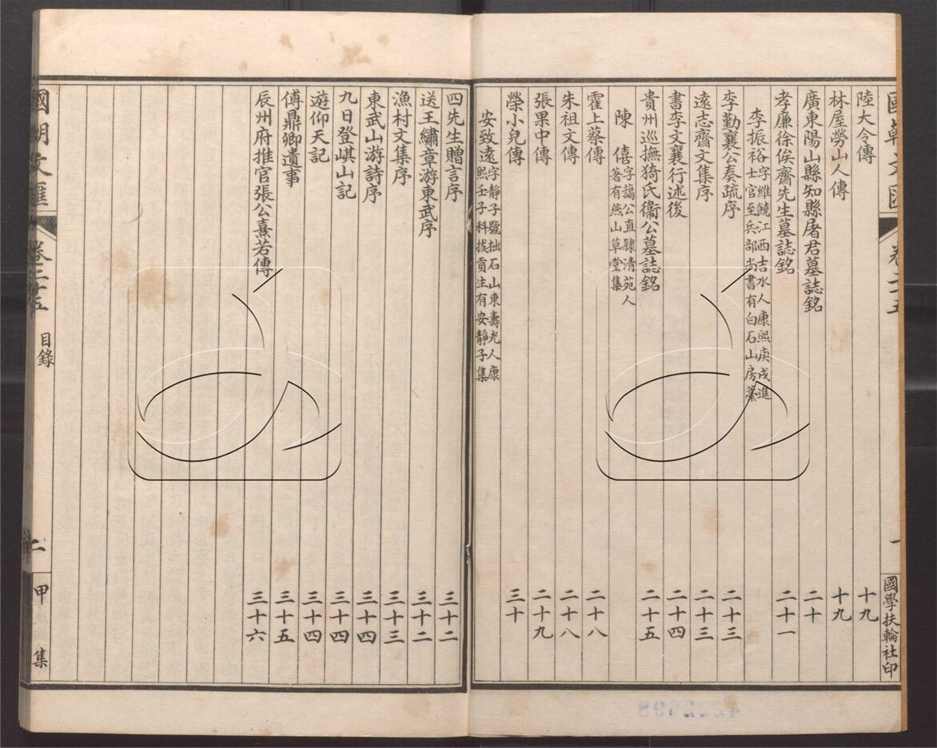 陸大令傳 十九
林屋勞山人傳 十九
廣東陽山縣知縣屠君墓誌銘 二十
孝廉徐俟齋先生墓誌銘 二十一
李振裕 字維饒江西吉水人康熙庚戌進
士官至兵部尚書有白石山房藁
李勤襄公奏疏序 二十三
遠志齋文集序 二十三
書李文襄行述後 二十四
貴州巡撫猗氏衞公墓誌銘 二十五
陳僖 字藹公直隸清苑人
著有燕山草堂集
霍上蔡傳 二十八
朱祖文傳 二十八
張果中傳 二十九
榮小兒傳 三十
安致遠 字靜子號拙石山東壽光人康
熙壬子科拔貢生有安靜子集
四先生贈言序 三十二
送王繡章游東武序 三十二
漁村文集序 三十三
東武山游詩序 三十四
九日登㟚山記 三十四
遊仰天記 三十四
傅鼎卿遺事 三十五
辰州府推官張公熹若傳 三十六
國朝文匯
卷二十五
目錄
二
甲集
國學扶輪社印